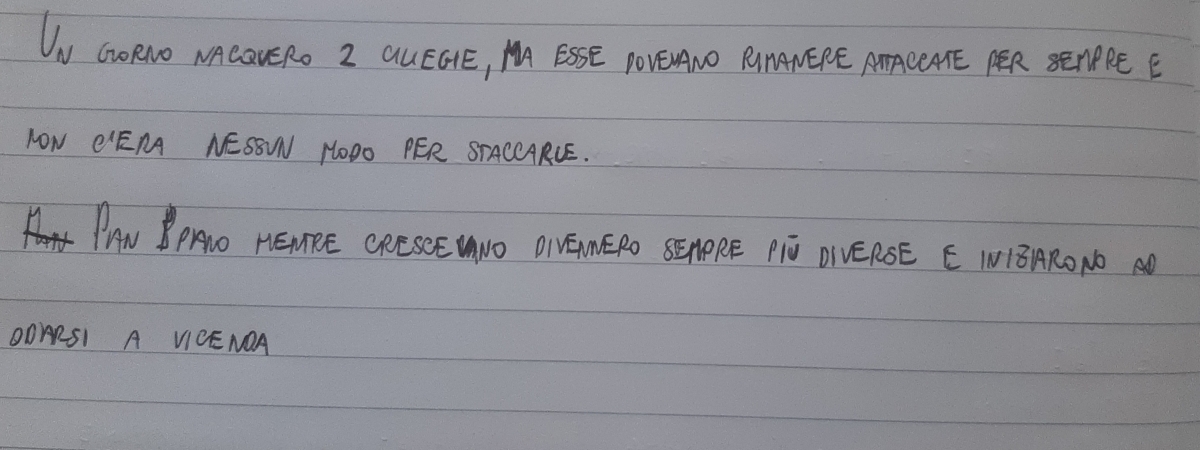 UN GIORNO NACQUERO 2 CILIEGIE, MA ESSE DOVEVANO RIMANERE ATTACCATE PER SEMPRE E
NON C'ERA NESSUN MODO PER STACCARLE.
PIAN PIANO MENTRE CRESCEVANO DIVENNERO SEMPRE PIÙ DIVERSE E INIZIARONO AD
ODIARSI A VICENDA